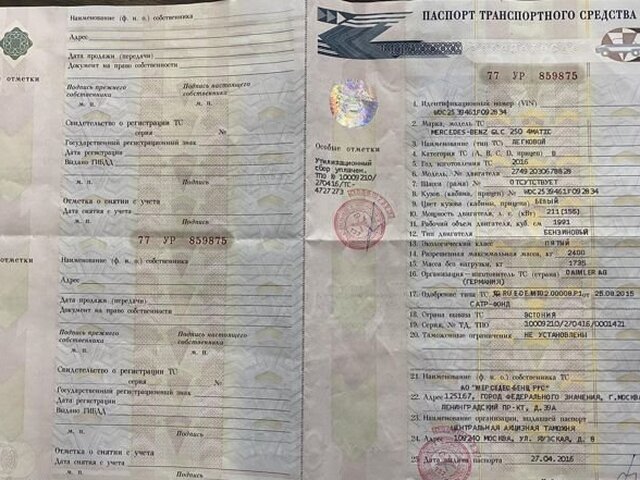 Наименование (ф. и. о.) собственника
Адрес
Дата продажи (передачи)
Документ на право собственности
отметки
Подпись прежнего собственника
Подпись настоящего собственника
М. П.
М. П.
Свидетельство о регистрации ТС
серия №
Государственный регистрационный знак
Дата регистрации
Выдано ГИБДД
М. П.
Подпись
Отметка о снятии с учета
Дата снятия с учета
М. П.
Подпись
77 УР 859875
отметки
Наименование (ф. и. о.) собственника
Адрес
Дата продажи (передачи)
Документ на право собственности
Подпись прежнего собственника
Подпись настоящего собственника
М. П.
М. П.
Свидетельство о регистрации ТС
серия №
Государственный регистрационный знак
Дата регистрации
Выдано ГИБДД
М. П.
Подпись
Отметка о снятии с учета
Дата снятия с учета
М. П.
Подпись
ПАСПОРТ ТРАНСПОРТНОГО СРЕДСТВА
77 УР 859875
Особые отметки
Утилизационный
сбор уплачен.
ТПО № 10009210/
270416/ТС-
4727273
1. Идентификационный номер (VIN)
WDC2539461F092834
2. Марка, модель ТС
MERCEDES-BENZ GLC 250 4MATIC
3. Наименование (тип ТС) ЛЕГКОВОЙ
4. Категория ТС (A, B, C, D, прицеп) B
5. Год изготовления ТС 2016
6. Модель, № двигателя 27492030678628
7. Шасси (рама) № ОТСУТСТВУЕТ
8. Кузов (кабина, прицеп) № WDC2539461F092834
9. Цвет кузова (кабины, прицепа) БЕЛЫЙ
10. Мощность двигателя, л. с. (кВт) 211 (155)
11. Рабочий объем двигателя, куб. см 1991
12. Тип двигателя БЕНЗИНОВЫЙ
13. Экологический класс ПЯТЫЙ
14. Разрешенная максимальная масса, кг 2400
15. Масса без нагрузки, кг 1735
16. Организация-изготовитель ТС (страна) DAIMLER AG
(ГЕРМАНИЯ)
17. Одобрение типа ТС № 25.08.2015
САТР-ФОНД
18. Страна вывоза ТС ЭСТОНИЯ
19. Серия, № ТД, ТПО 10009210/270416/0001421
20. Таможенные ограничения НЕ УСТАНОВЛЕНЫ
21. Наименование (ф. и. о.) собственника ТС
АО "МЕРСЕДЕС-БЕНЦ РУС"
22. Адрес 125167, ГОРОД ФЕДЕРАЛЬНОГО ЗНАЧЕНИЯ, Г.МОСКВА
ЛЕНИНГРАДСКИЙ ПР-КТ, Д.39А
23. Наименование организации, выдавшей паспорт
ЦЕНТРАЛЬНАЯ АКЦИЗНАЯ ТАМОЖНЯ
24. Адрес 109240 МОСКВА, УЛ. ЯУЗСКАЯ, Д. 8
25. Дата выдачи паспорта 27.04.2016